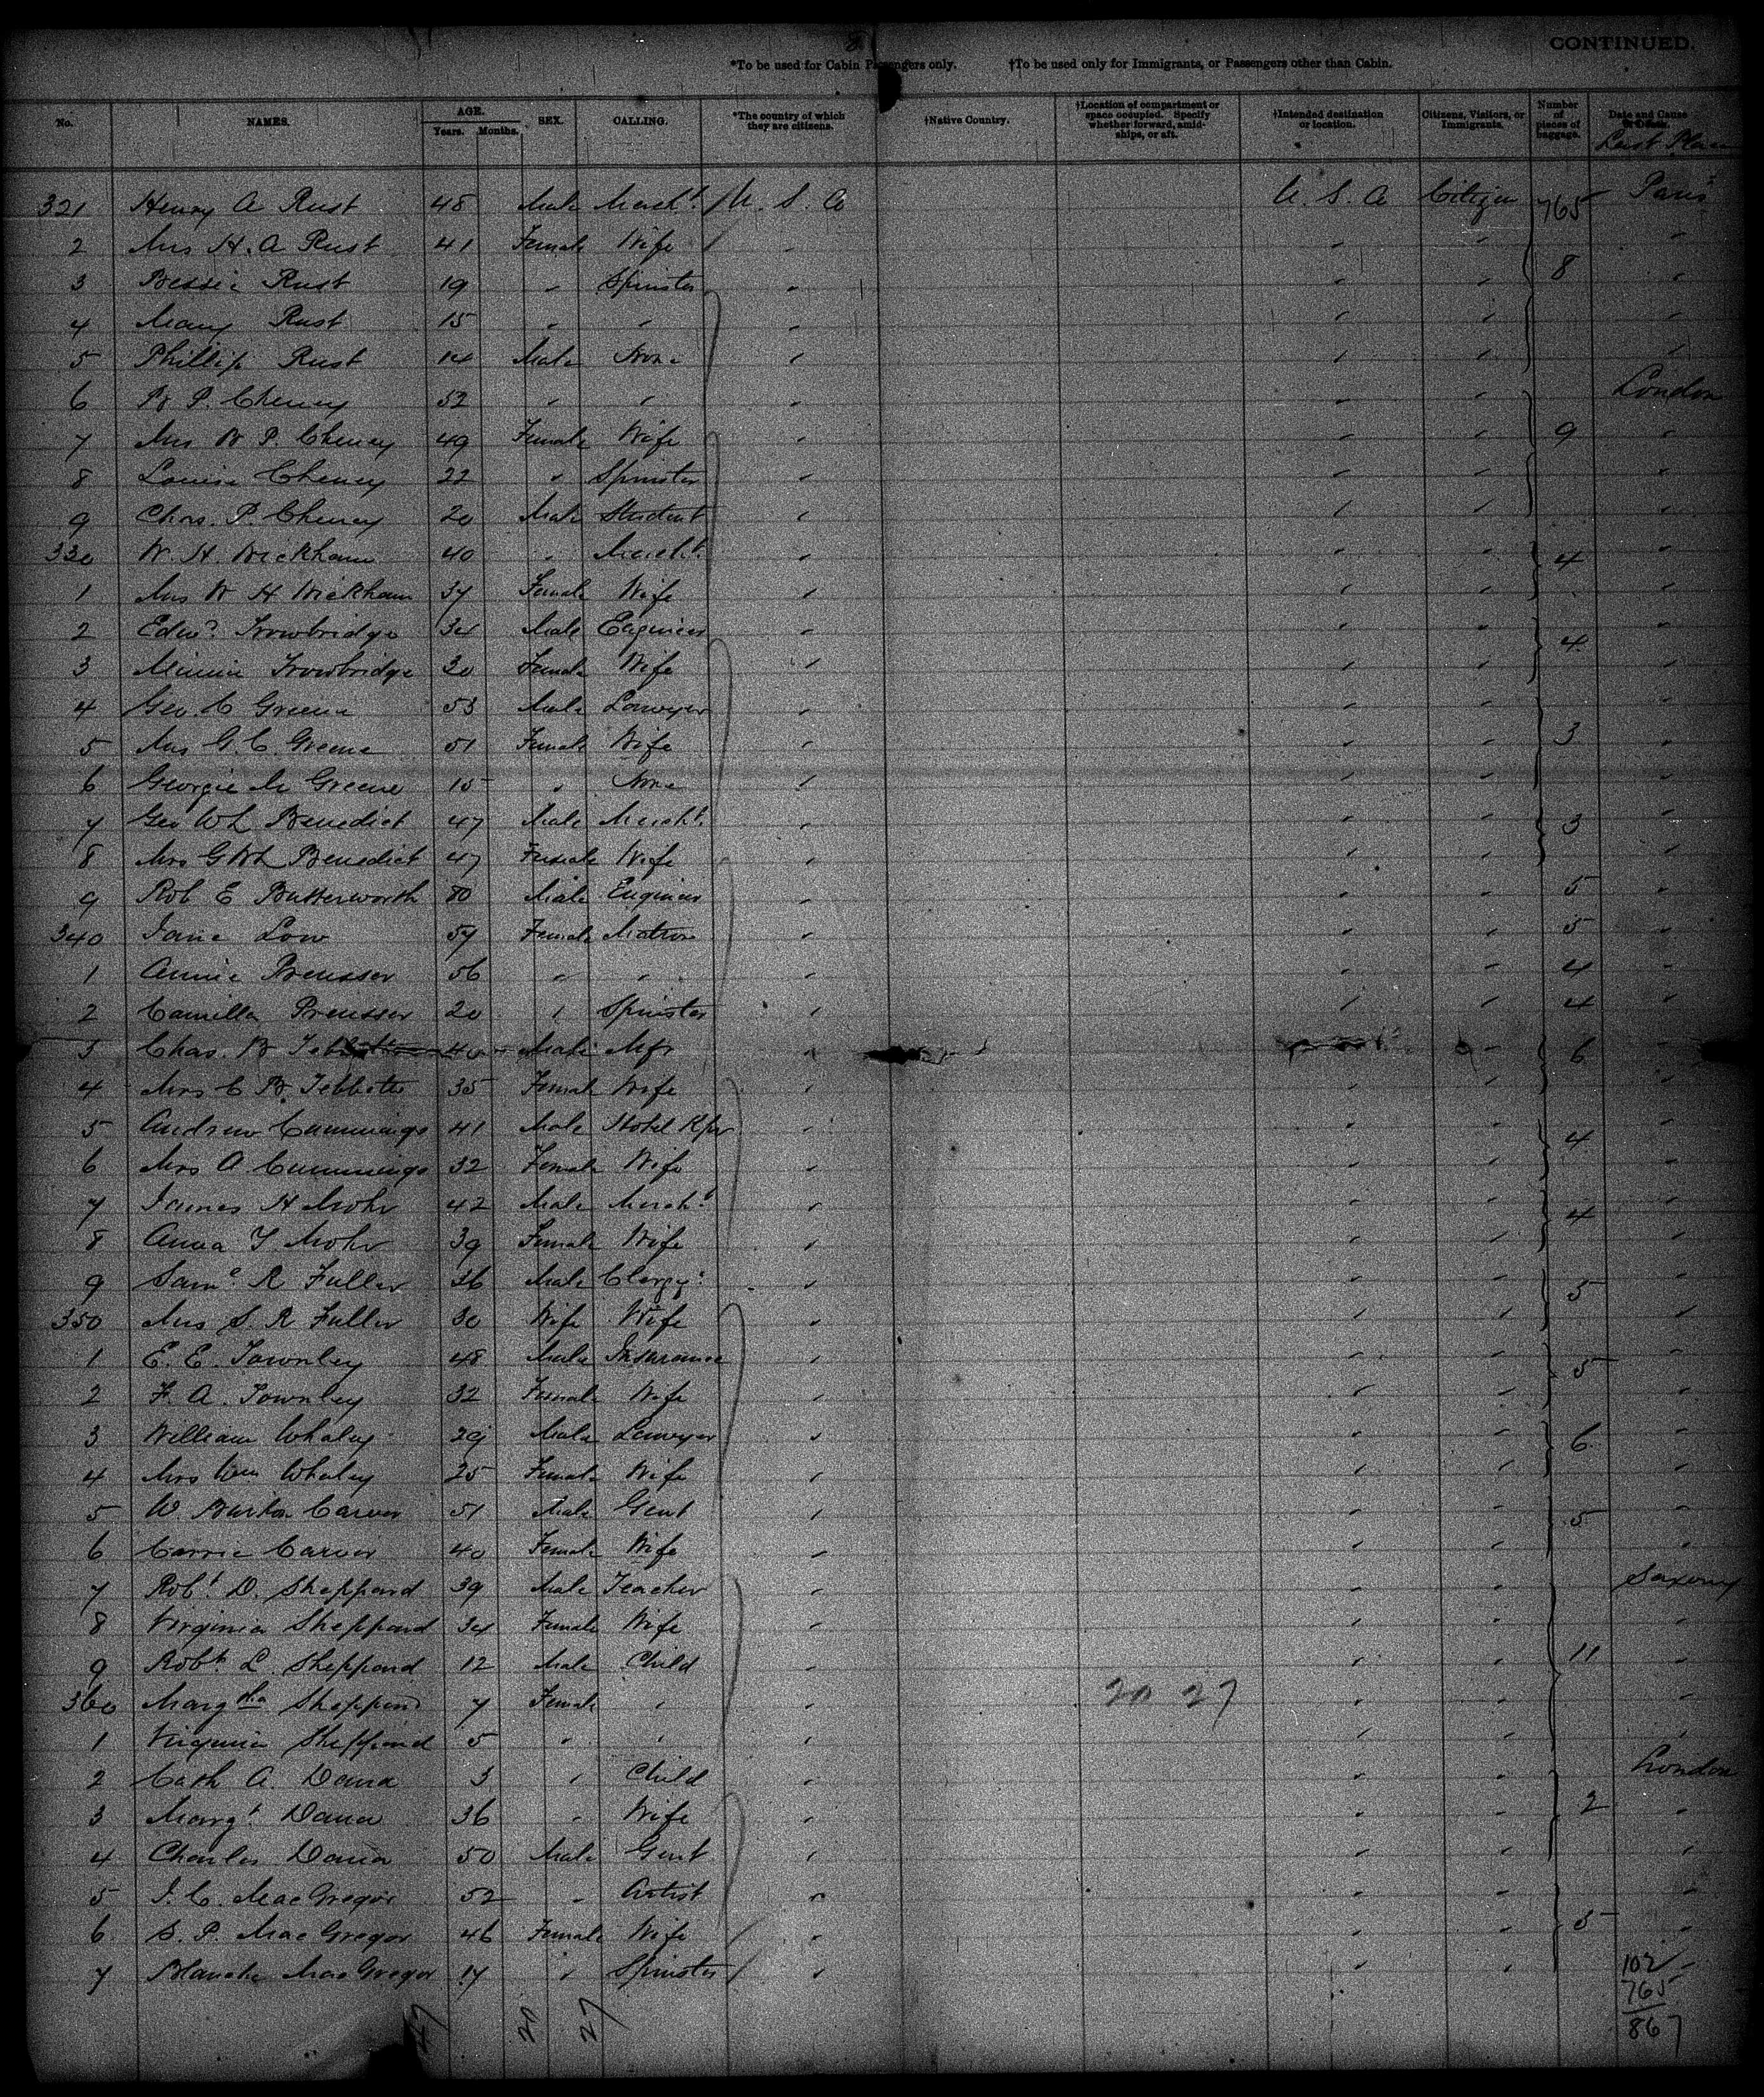 8
CONTINUED.
*To be used for Cabin Passengers only. †To be used only for Immigrants, or Passengers other than Cabin.
No. NAMES. AGE. Years. Months. SEX. CALLING. *The country of which they are citizens. †Native Country. †Location of compartment or space occupied. Specify whether forward, amidships, or aft. †Intended destination or location. Citizens, Visitors, or Immigrants. Number of pieces of baggage. Date and Cause of Death. Last Place
321 Henry A Rust 45 Male Mercht. U. S. A U. S. A Citizen 765 Paris
2 Mrs H. A Rust 41 Female Wife " " " "
3 Bessie Rust 19 " Spinster " " " 8 "
4 Mary Rust 15 " " " " " "
5 Phillip Rust 14 Male None " " " "
6 B P. Cheney 52 " " " " " London
7 Mrs B P. Cheney 49 Female Wife " " " 9 "
8 Louise Cheney 22 " Spinster " " " "
9 Chas. P. Cheney 20 Male Student " " " "
330 W. H. Wickham 40 " Mercht. " " " 4 "
1 Mrs W H Wickham 37 Female Wife " " " "
2 Edwd. Trowbridge 34 Male Engineer " " " 4 "
3 Minnie Trowbridge 30 Female Wife " " " "
4 Geo. C Greene 53 Male Lawyer " " " "
5 Mrs G. C. Greene 51 Female Wife " " " 3 "
6 Georgie M Greene 15 " None " " " "
7 Geo Wh Benedict 47 Male Mercht. " " " 3 "
8 Mrs G Wh Benedict 47 Female Wife " " " "
9 Rob E Butterworth 80 Male Engineer " " " 5 "
340 Jane Low 57 Female Matron " " " 5 "
1 Annie Preusser 56 " " " " " 4 "
2 Camilla Preusser 20 " Spinster " " " 4 "
3 Chas. B Tebbetts 40 Male Mfr " " " 6 "
4 Mrs C B. Tebbetts 35 Female Wife " " " "
5 Andrew Cummings 41 Male Hotel Kpr " " " 4 "
6 Mrs A Cummings 32 Female Wife " " " "
7 James H Mohr 42 Male Mercht. " " " 4 "
8 Anna Y Mohr 39 Female Wife " " " "
9 Saml. R Fuller 36 Male Clergy. " " " 5 "
350 Mrs S. R Fuller 30 Wife Wife " " " "
1 E. E. Townley 48 Male Insurance " " " 5 "
2 F. A. Townley 32 Female Wife " " " "
3 William Whaley 29 Male Lawyer " " " 6 "
4 Mrs Wm Whaley 25 Female Wife " " " "
5 W. Burton Carver 51 Male Gent " " " 5 "
6 Carrie Carver 40 Female Wife " " " "
7 Robt. D. Sheppard 39 Male Teacher " " " Saxony
8 Virginia Sheppard 34 Female Wife " " " "
9 Robt. L. Sheppard 12 Male Child " " " 11 "
360 Sheppard 7 Female " " 20 27 " " "
1 Virginia Sheppard 5 " " " " " "
2 Cath A. Dana 3 " Child " " " London
3 Margt Dana 36 " Wife " " " 2 "
4 Charles Dana 50 Male Gent " " " "
5 J. C. MacGregor 52 " Artist " " " "
6 S. P. MacGregor 46 Female Wife " " " 5 "
7 Blanche MacGregor 17 " Spinster " " " "
47 20 27
102
765
867